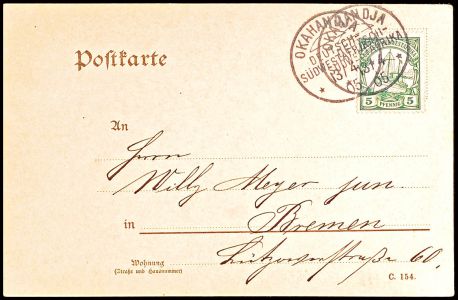 Postkarte
OKAHANDJA
DEUTSCH-
SÜDWESTAFRIKA
13/4
05
5 PFENNIG 5
An
Herrn
Willy Meyer jun.
in Bremen
Lützowerstraße 60.
Wohnung
(Straße und Hausnummer)
C. 154.